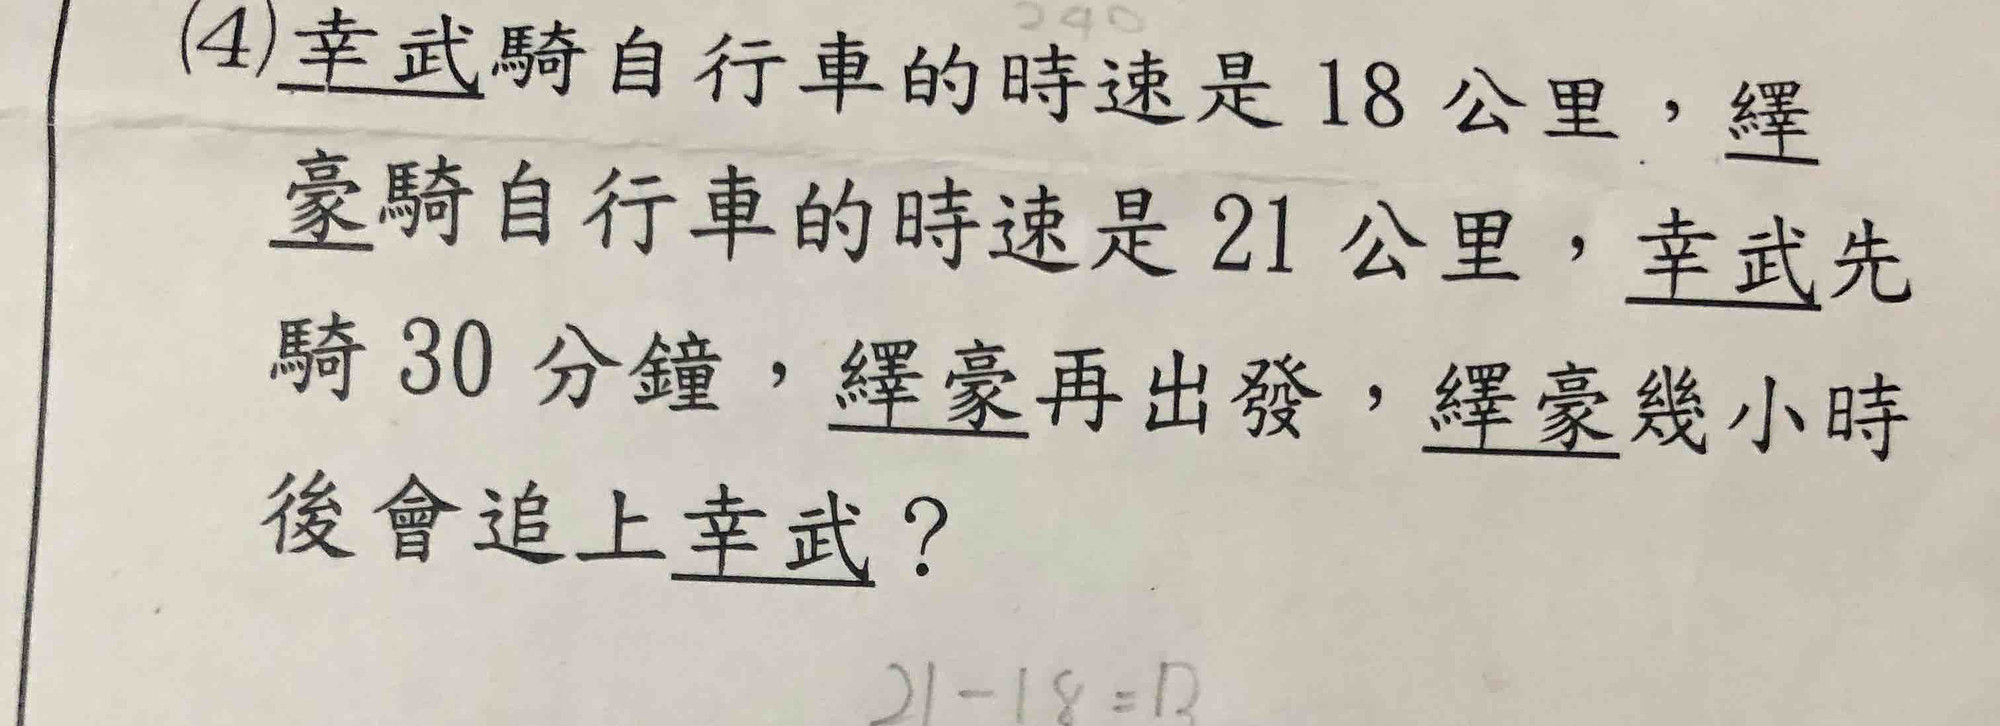 240
(4)幸武騎自行車的時速是18公里，繹
豪騎自行車的時速是21公里，幸武先
騎30分鐘，繹豪再出發，繹豪幾小時
後會追上幸武？
21-18=13